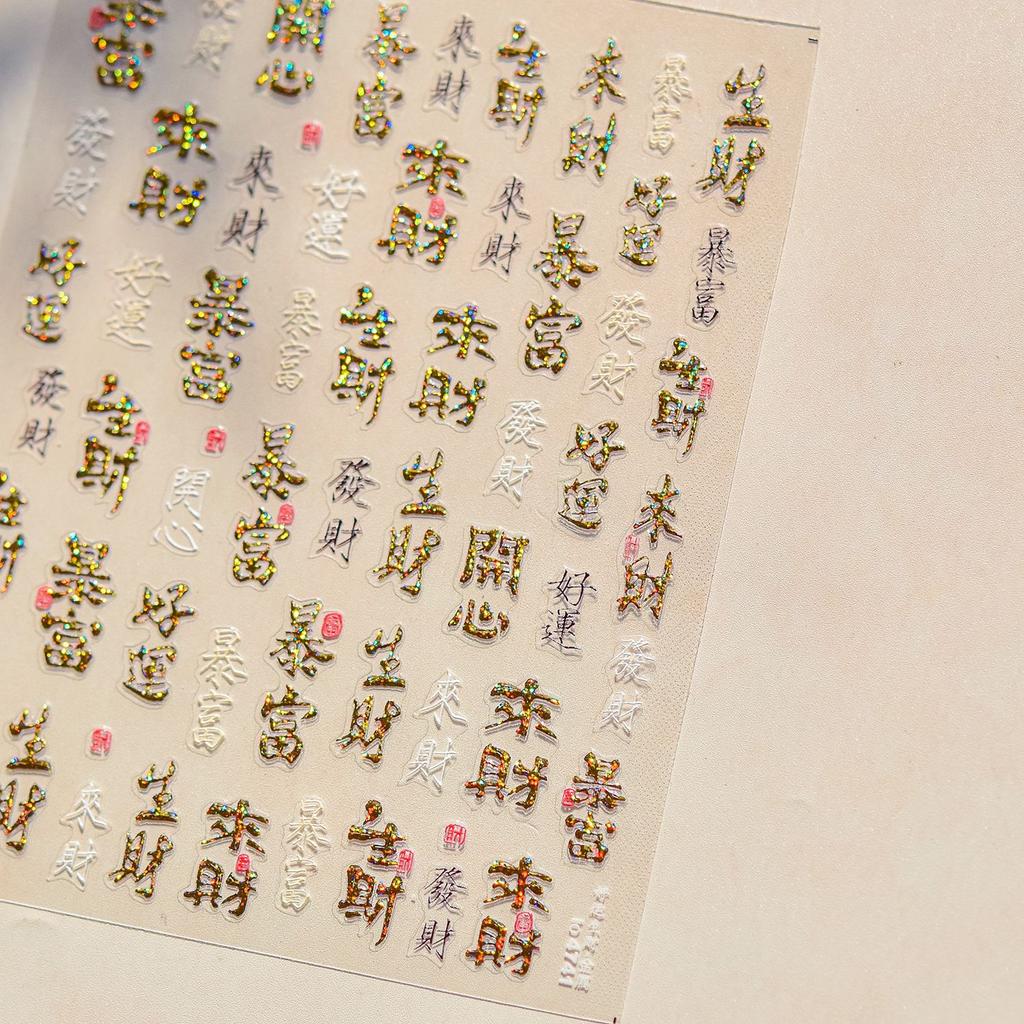 暴富
財
開心
暴富
來財
生財
來財
暴富
生財
發財
來財
來財
好運
來財
來財
暴富
好運
暴富
好運
好運
暴富
暴富
生財
來財
發財
生財
發財
生財
開心
暴富
發財
生財
發財
開心
好運
好運
來財
暴富
好運
暴富
暴富
生財
來財
來財
發財
暴富
生財
來財
生財
來財
暴富
生財
發財
來財